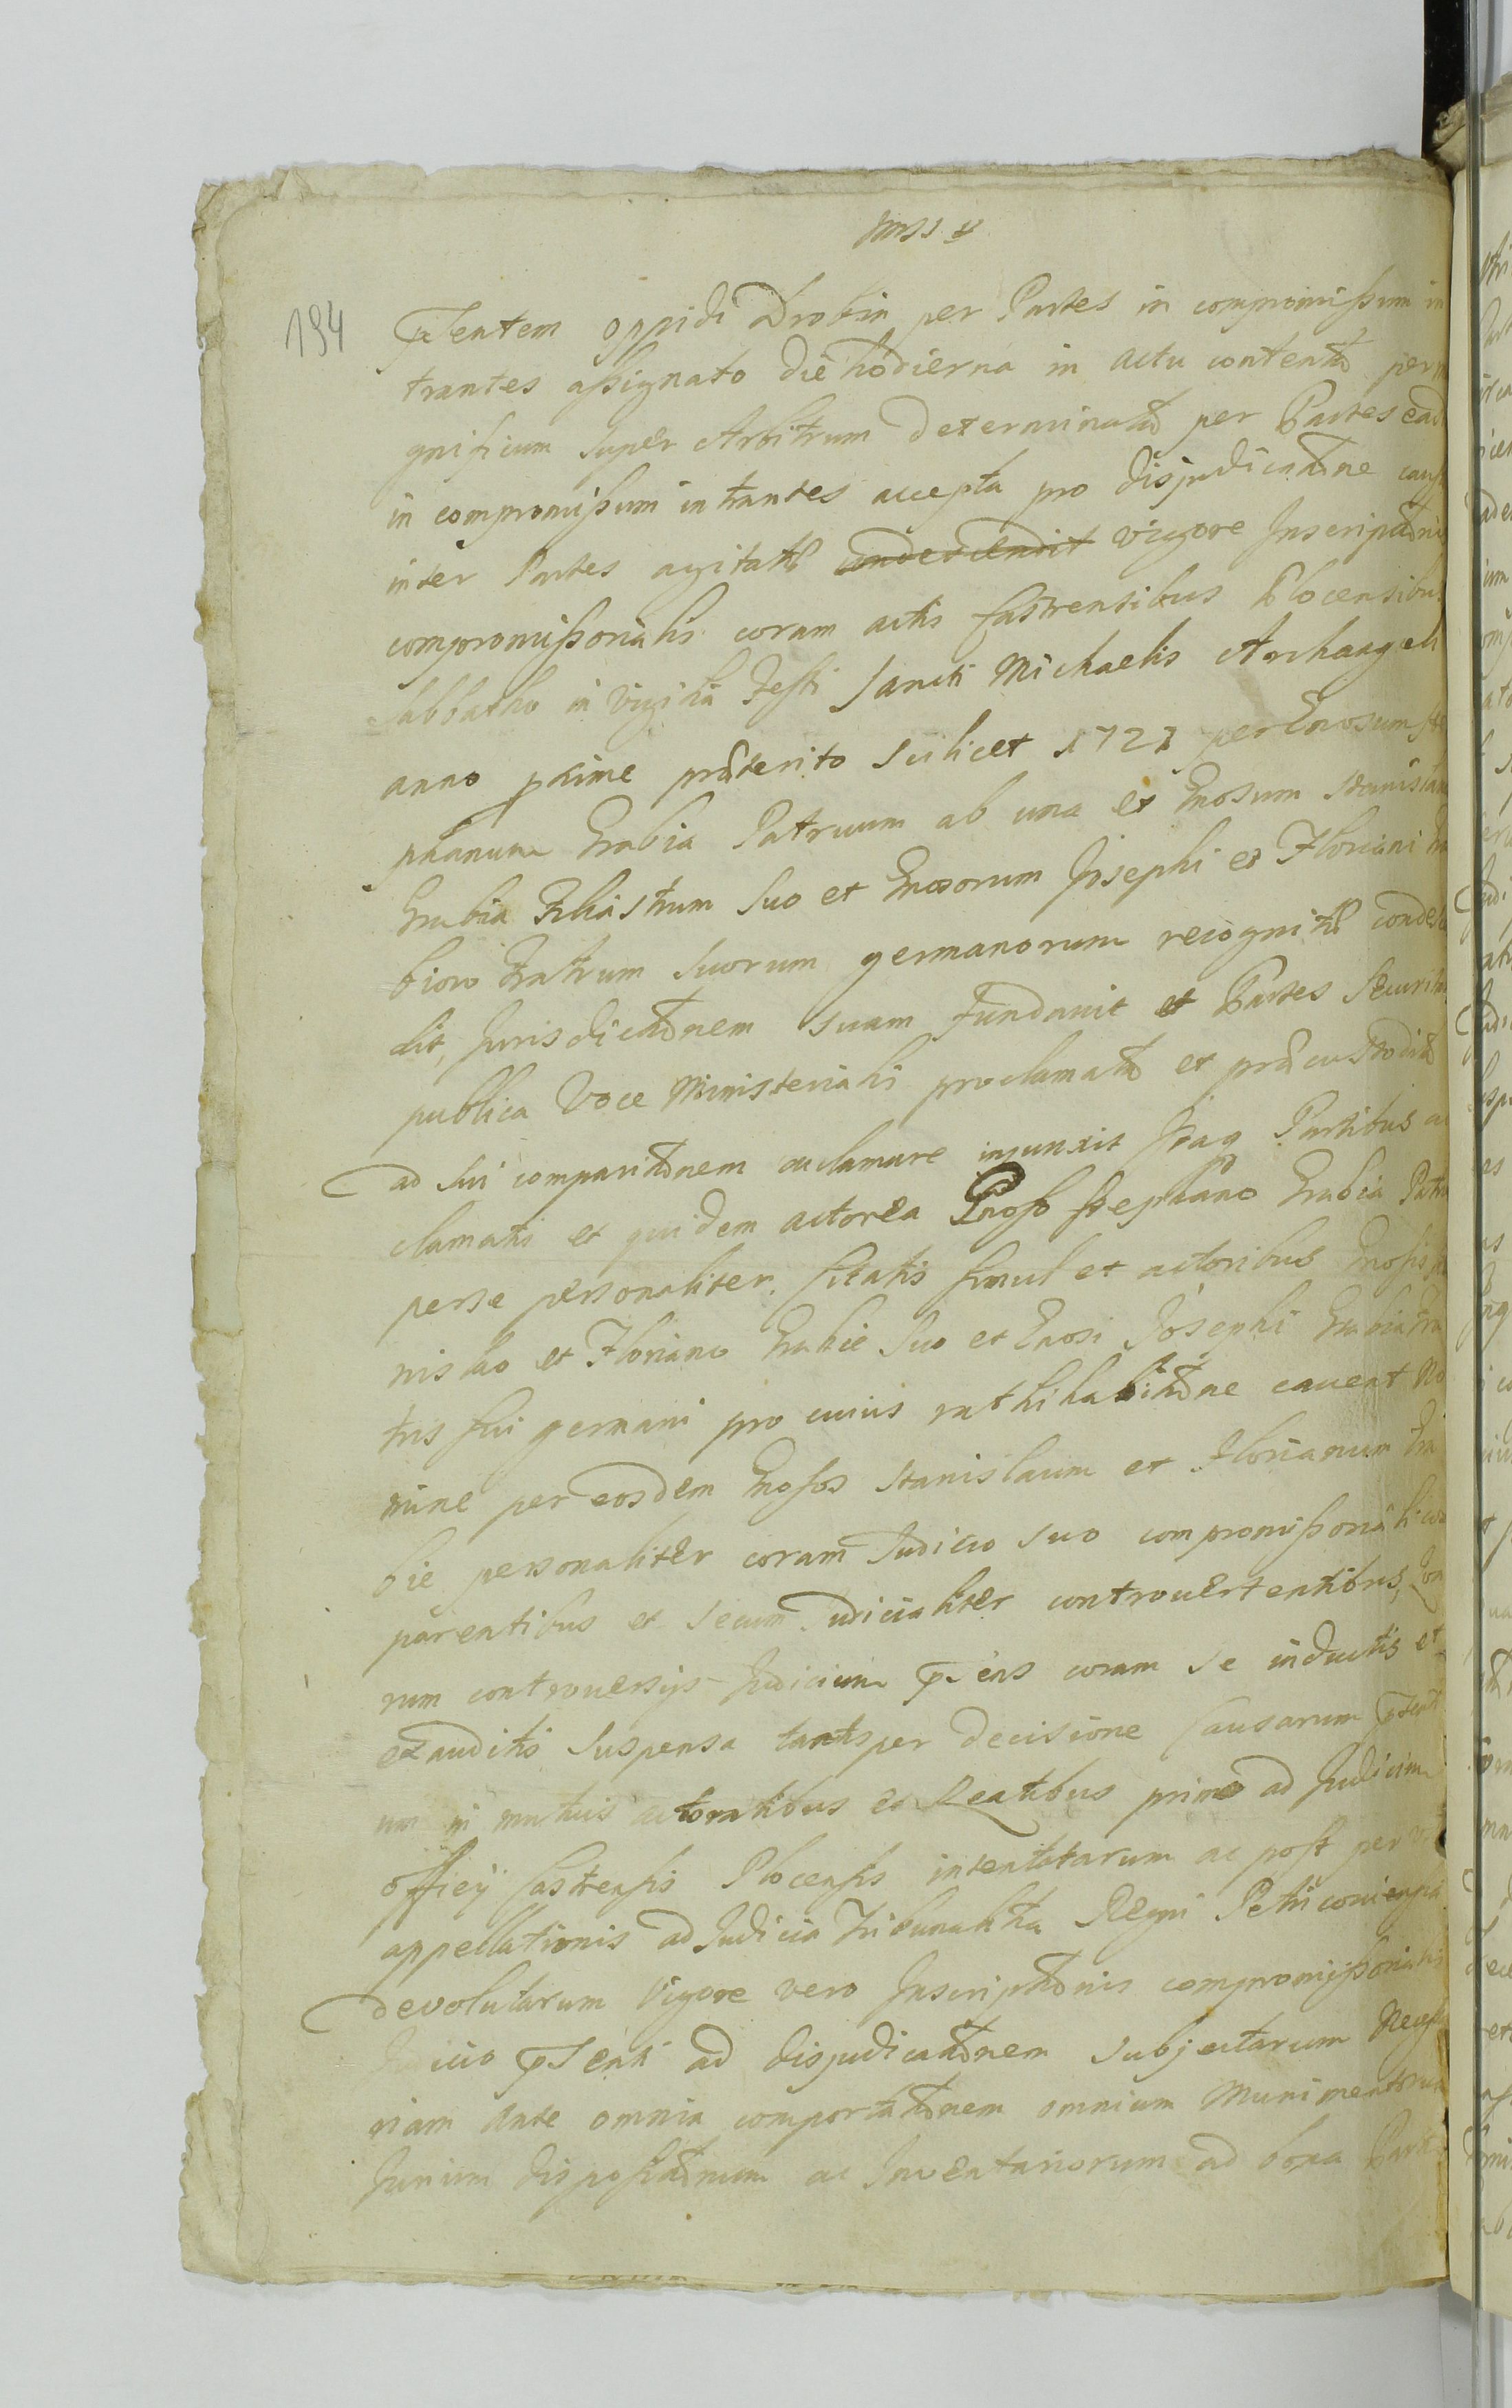 194
pntem oppidi Drobin per Partes in compromissum in
trantes assignato die hodierna in actu contenta per
gnificum super Arbitrum determinata per Partes ead
in compromissum intrantes accepta pro disjudicatne caus
inter Partes agitat condescendit vigore Inscriptnis
compromissorialis coram actis Castrensibus Plocensibus
Sabbatho in vigilia Festi Sancti Michaelis Archangeli
anno pxime prterito scilicet 1727 per Gnosum Ste
phanum Grabia Patruum ab una et Gnosum Stanislaum
Grabia Filiastrum suo et Gnosorum Josephi et Floriani Gra
biow Fratrum suorum germanorum recognit condescen
dit, Jurisdictnem suam fundavit et Partes securita
publica Voce Ministeriali proclamata et prcustodita
ad sui comparitnem acclamare injunxit Itaq Partibus ac
clamatis et quidem actorea Gnoso Stephano Grabia Patruo
per se personaliter. Citatis simul et actoribus Gnosis Sta
nislao et Floriano Grabie suo et Gnosi Josephi Grabia Fra
tris sui germani pro cuius rathihabitne cavent No
mine per eosdem Gnosos Stanislaum et Florianum Gra
bie personaliter coram Judicio suo compromissoriali com
parentibus et secum Judicialiter controvertentibus, Quo
rum controversijs Judicium pns coram se inductis et
exauditis suspensa tantisper decisione Causarum pnti
um in mutuis actoratibus et Reatibus primo ad Judicium
officij Castrensis Plocensis intentatarum ac post per
appellationis ad Judicia Tribunalitia Regni Petricoviensia
devolutarum Vigore vero Inscriptnis compromissorialis
Judicio pnti ad disjudicatnem subjectarum Necessa
riam ante omnia comportatnem omnium Munimentorum
Jurium dispositnum ac Inventariorum ad bona Parti